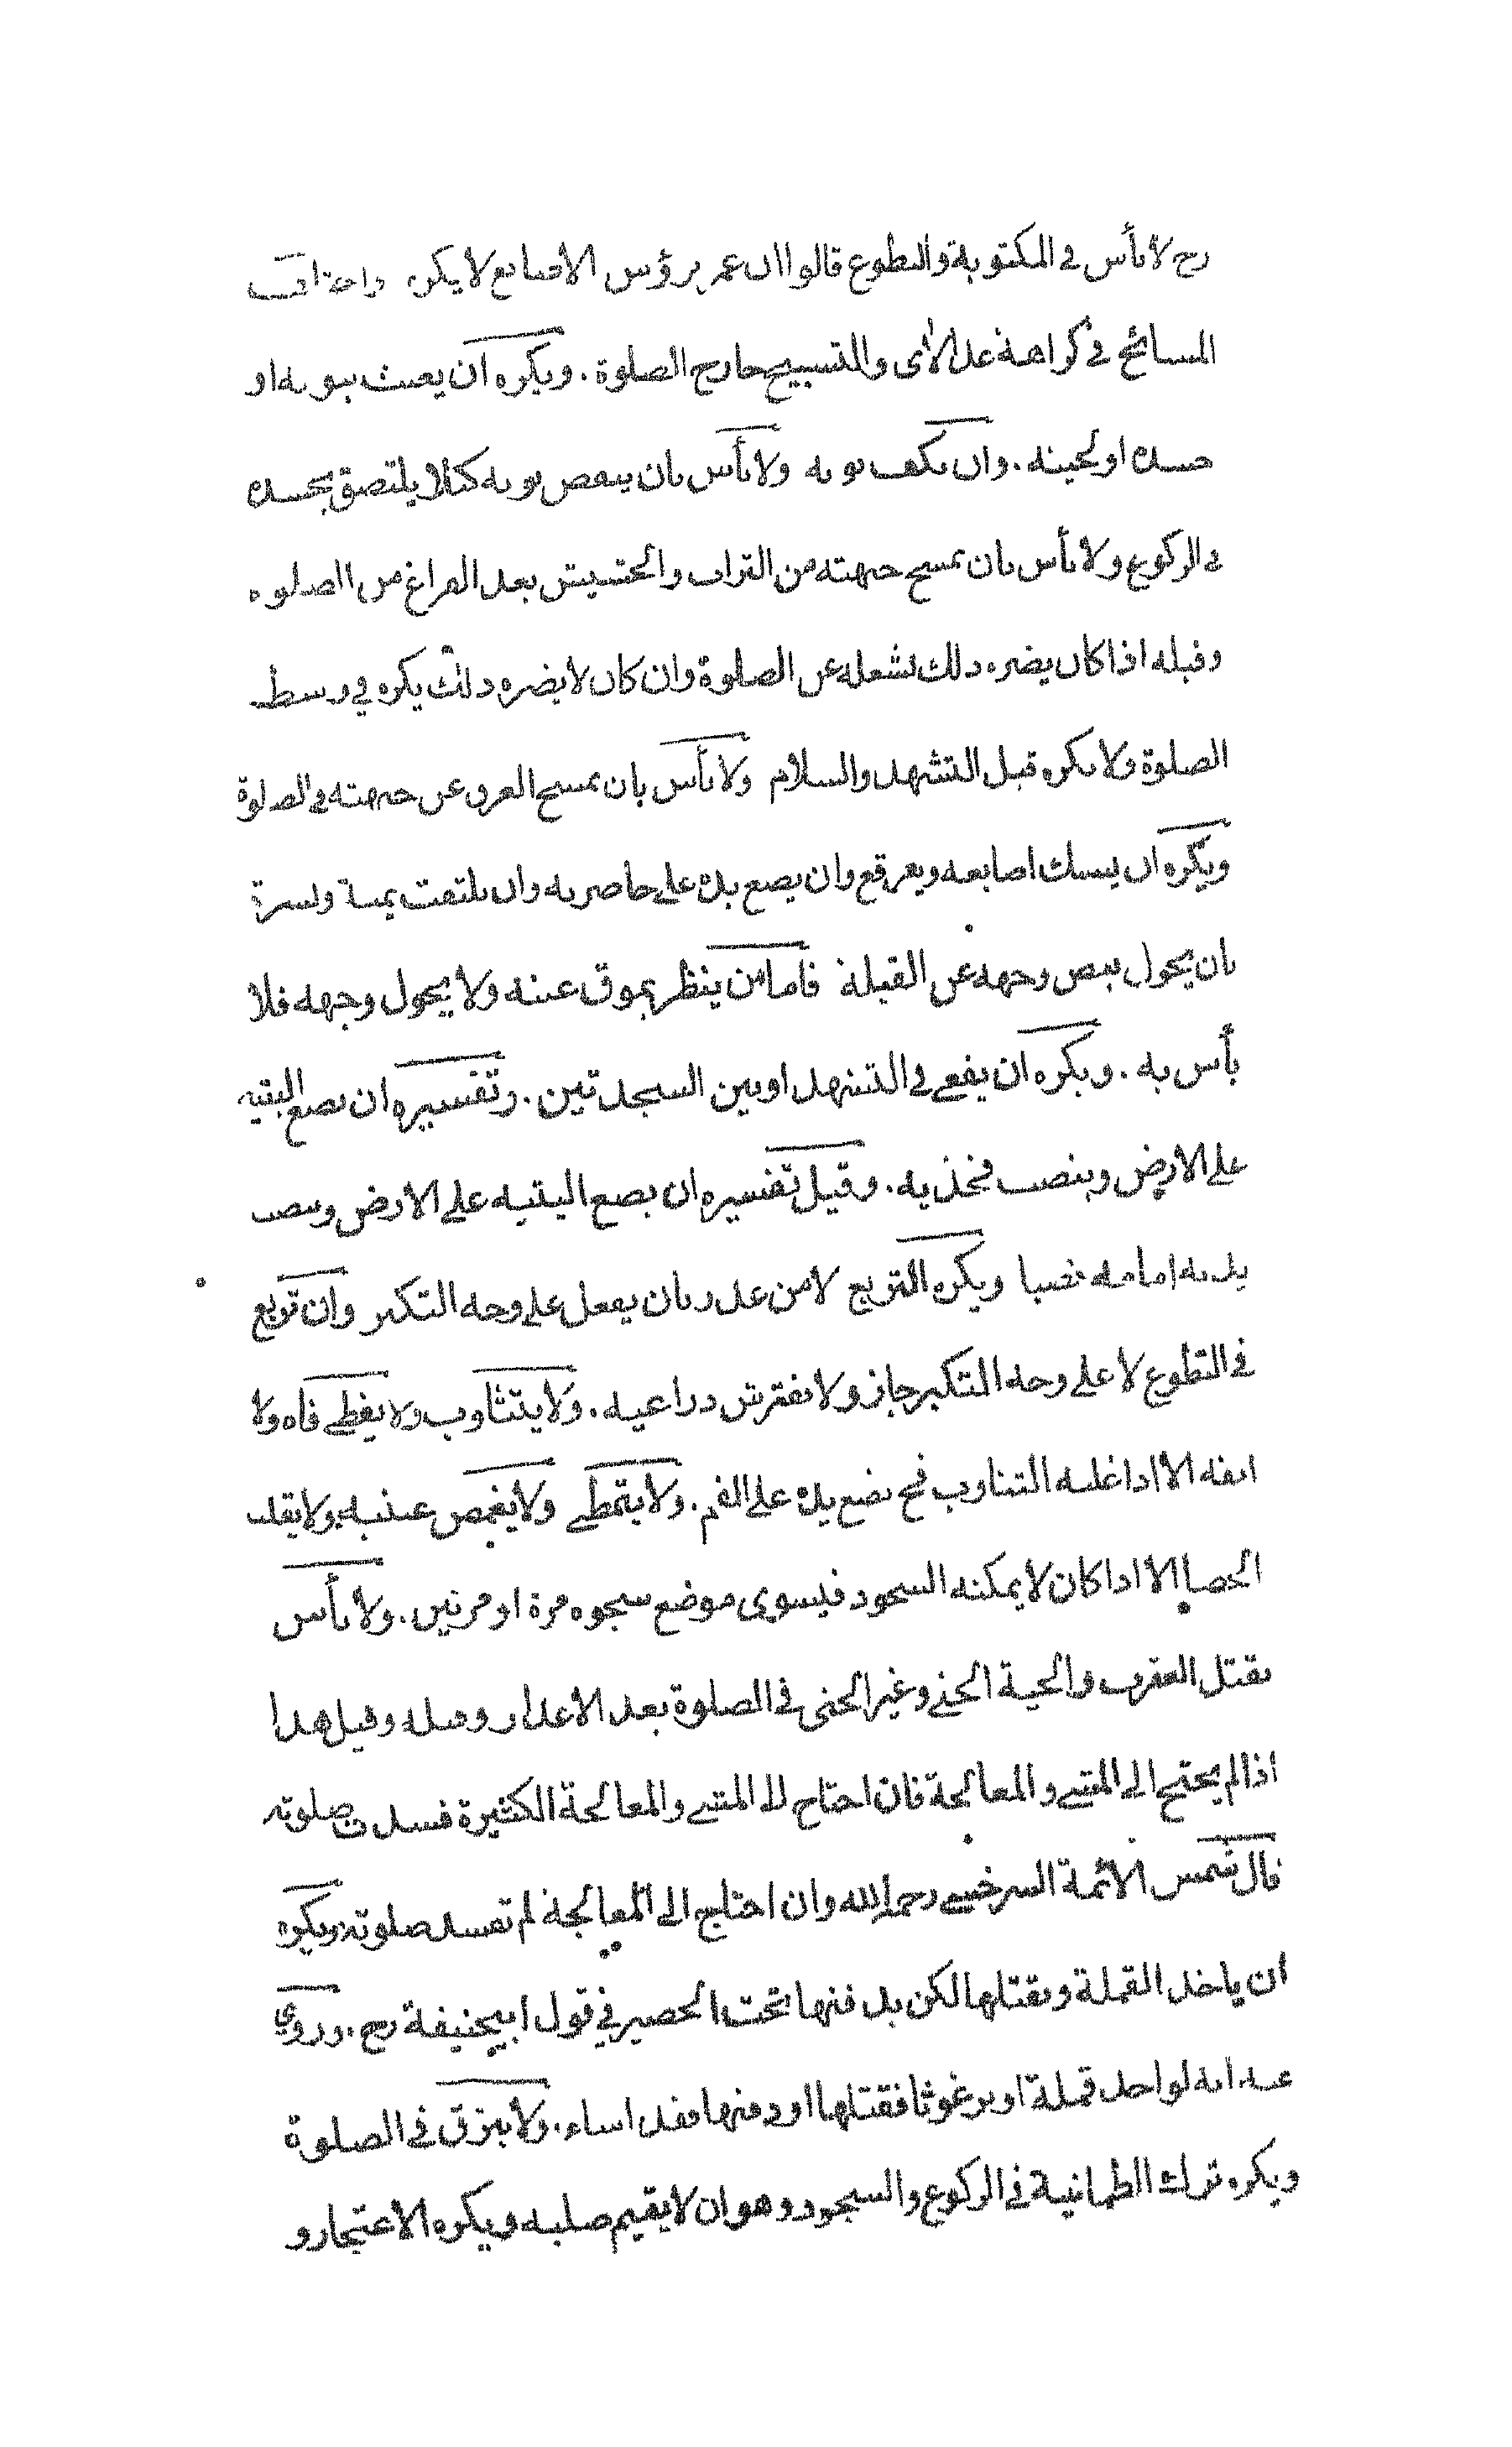 رح لا بأس في المكتوبة والتطوع قالوا ان غمز برؤس الاصابع لا يكره واختلف
المسائخ في كراهة عد الآى والتسبيح خارج الصلوة . ويكره ان يعبث بثوبه او
جسده او لحيته . وان يكف ثوبه ولا بأس بان ينفض ثوبه كيلا يلتصق بجسده
في الركوع ولا بأس بان يمسح جبهته من التراب والحشيش بعد الفراغ من الصلوه
وقبله اذا كان يضره ذلك لشغله عن الصلوة وان كان لا يضره ذلك يكره في وسط
الصلوة ولا يكره قبل التشهد والسلام ولا بأس بان يمسح العرق عن جبهته في الصلوة
ويكره ان يشبك اصابعه ويفرقع وان يضع يده على خاصرته وان يلتفت يمنة ويسرة
بان يحول بعض وجهه عن القبلة فاما من ينظر بموق عينه ولا يحول وجهه فلا
بأس به . ويكره ان يقعى في التشهد او بين السجدتين . وتفسيره ان يضع اليتيه
على الارض وينصب فخذيه . وقيل تفسيره ان يضع اليتيه على الارض وينصب
يديه امامه نصبا ويكره التربع لا من عذر بان يفعل على وجه التكبر وان تربع
في التطوع لا على وجه التكبر جاز ولا يفترش ذراعيه . ولا يتثاوب ولا يغطى فاه ولا
انفه الا اذا غلبه التثاوب فح يضع يده على الفم . ولا يتمطى ولا يغمض عينيه ولا يقلب
الحصا الا اذا كان لا يمكنه السجود فيسوى موضع سجوه مرة او مرتين . ولا بأس
بقتل العقرب والحية الجنى وغير الجنى في الصلوة بعد الاعذار وقبله وقيل هذا
اذا لم يحتج الى المشى والمعالجة فان احتاج الى المشى والمعالجة الكثيرة فسدت صلوته
قال شمس الائمة السرخسى رحمه الله وان احتاج الى المعالجة لم تفسد صلوته ويكره
ان ياخذ القملة ويقتلها لكن يدفنها تحت الحصير في قول ابيحنيفة رح . وروي
عنه انه لو اخذ قملة او برغوثا فقتلها او دفنها فقد اساء . ولا يبزق في الصلوة
ويكره ترك الطمانية في الركوع والسجود وهو ان لا يقيم صلبه ويكره الاعتجار و